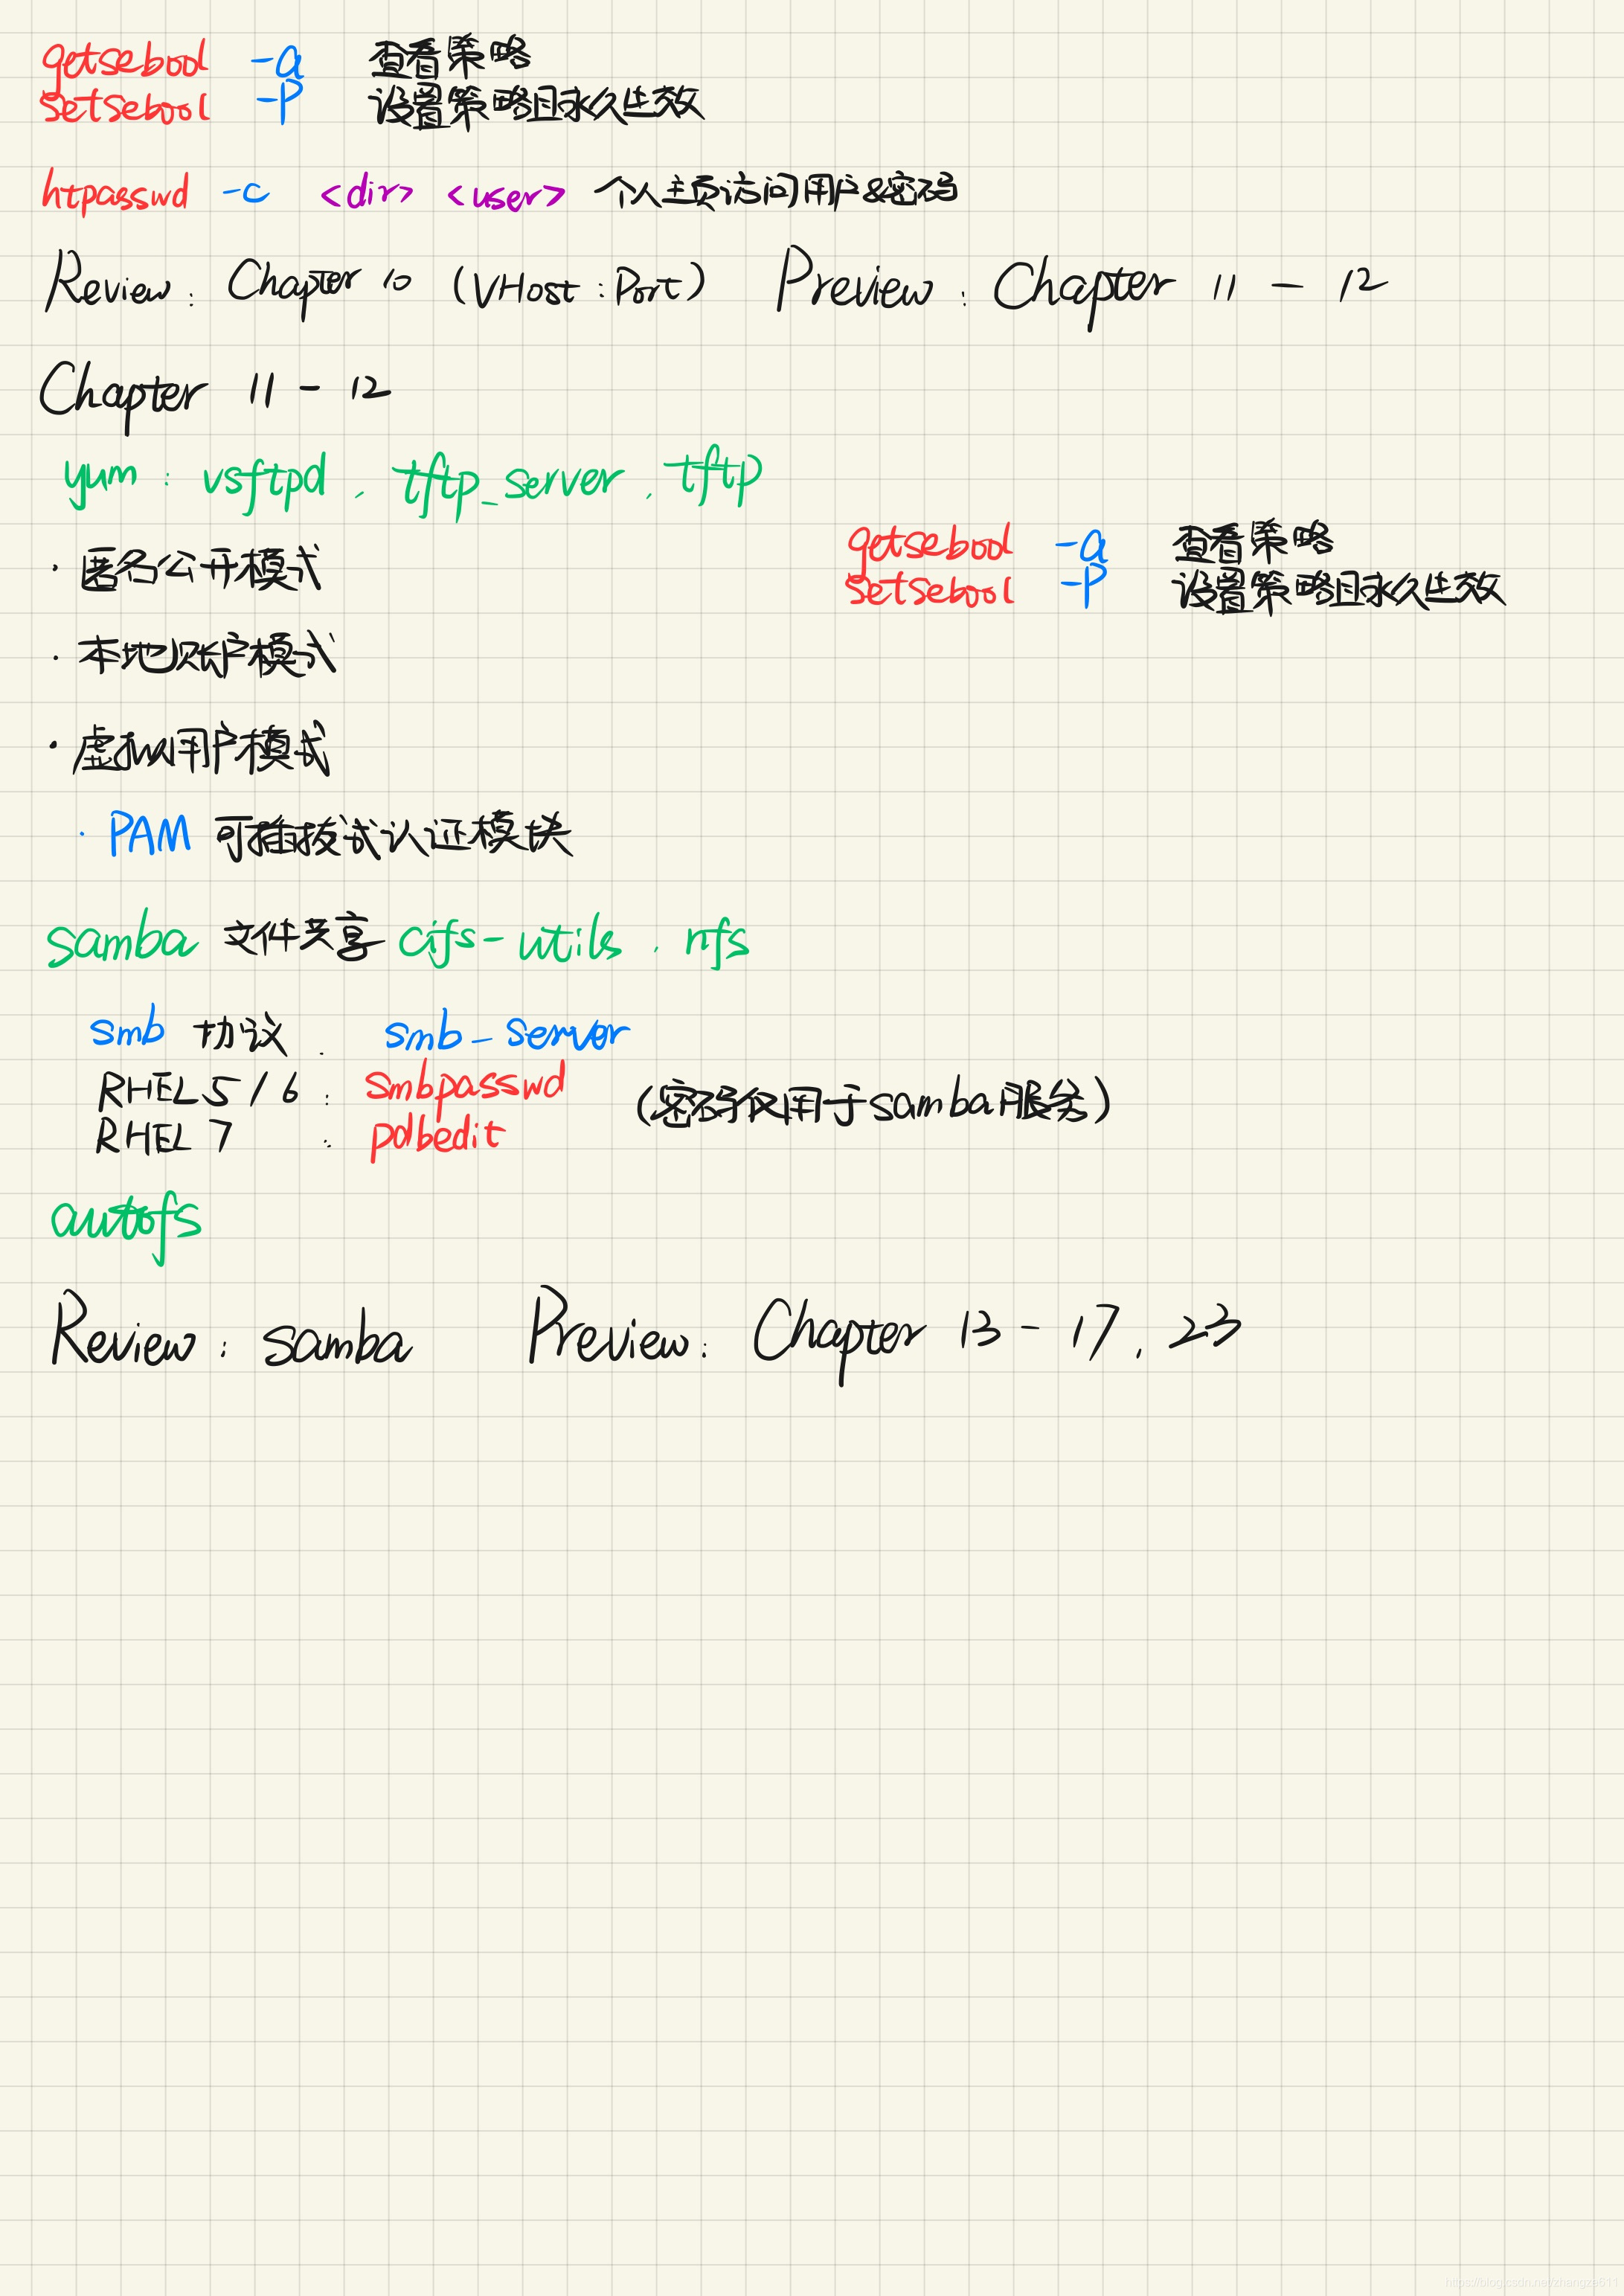 getsebool -a 查看策略
setsebool -P 设置策略且永久生效
htpasswd -c <dir> <user> 个人主页访问用户&密码
Review: Chapter 10 (VHost:Port) Preview: Chapter 11 - 12
Chapter 11 - 12
yum: vsftpd, tftp_server, tftp
· 匿名公开模式
getsebool -a 查看策略
setsebool -P 设置策略且永久生效
· 本地账户模式
· 虚拟用户模式
· PAM 可插拔式认证模块
samba 文件共享 cifs-utils, nfs
smb 协议. smb_server
RHEL 5/6: smbpasswd (密码仅用于samba服务)
RHEL 7: pdbedit
autofs
Review: samba Preview: Chapter 13 - 17, 23